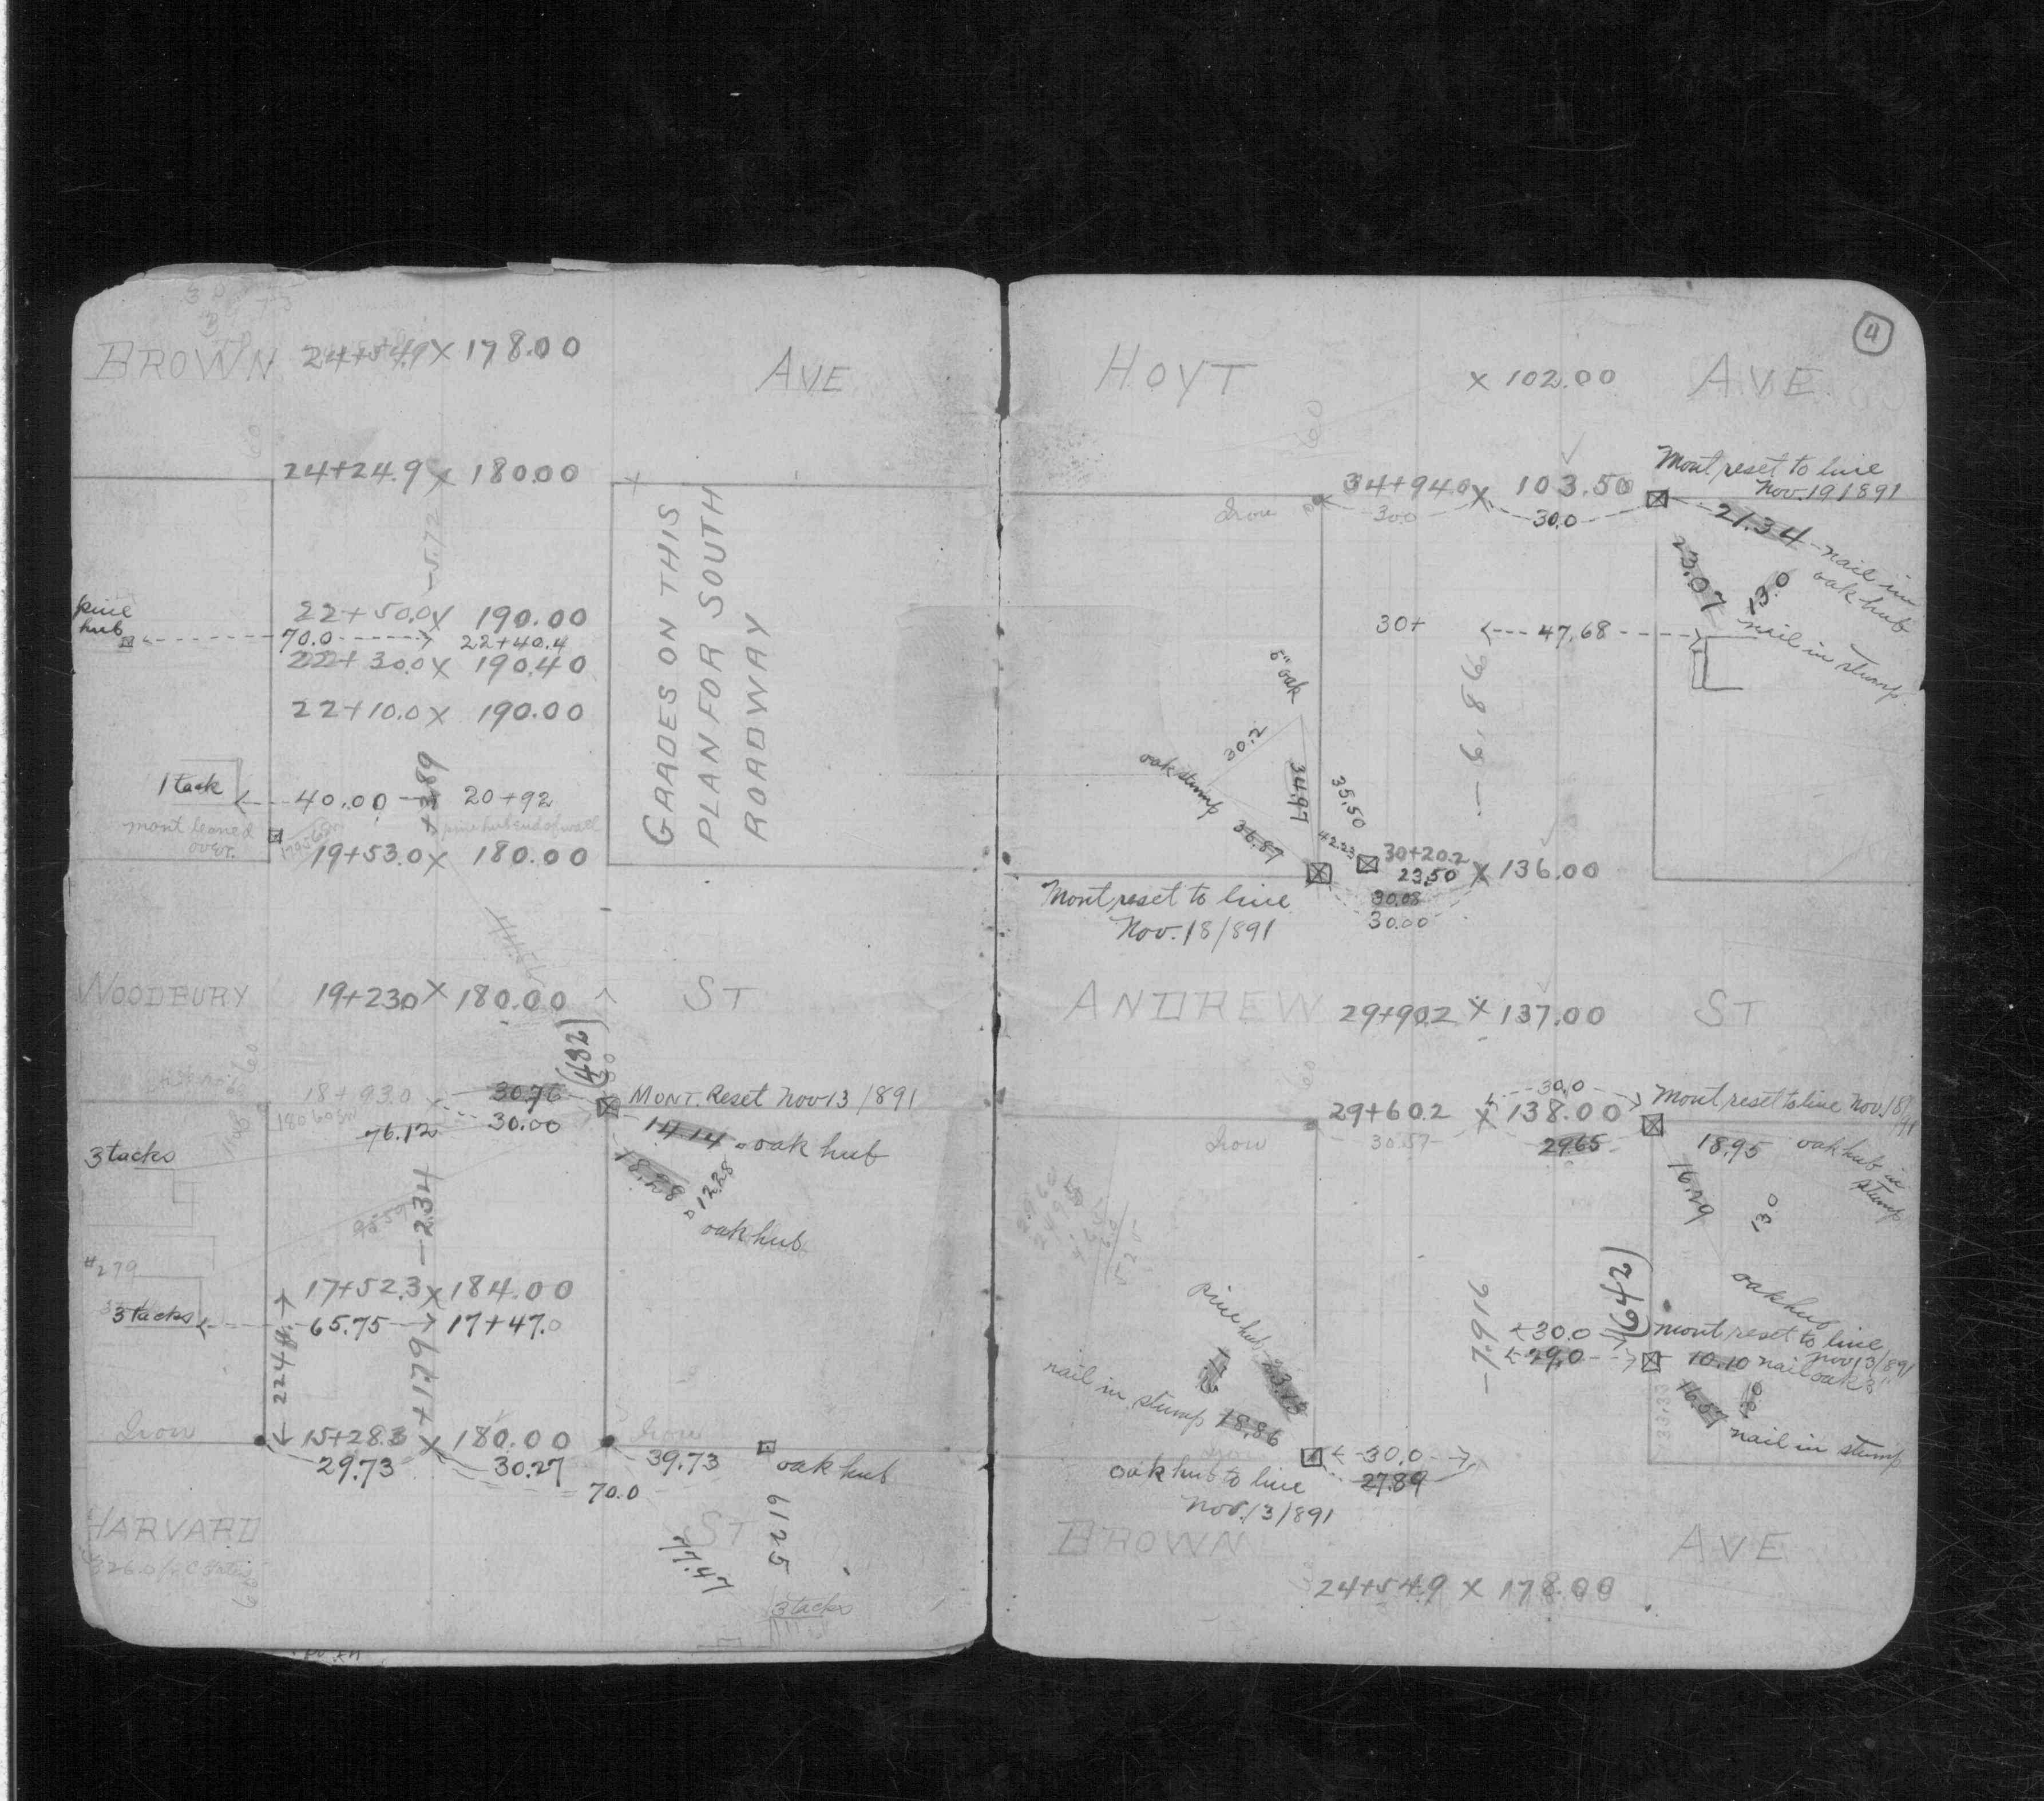 BROWN 24+54.9 x 178.00 AVE
24+24.9 x 180.00
-5.72
22+50.0 x 190.00
pine
hub
70.0 22+40.4
22+30.0 x 190.40
22+10.0 x 190.00
GRADES ON THIS
PLAN FOR SOUTH
ROADWAY
1 tack 40.00 20+92
mont leaned
over.
19+53.0 x 180.00
WOODBURY 19+23.0 x 180.00 ST
(482)
18+93.0 30.76 MONT. Reset Nov 13/891
76.12 30.00
14.14 oak hub
3 tacks
18.28 12.28
oak hub
-2.34
#279
17+52.3 x 184.00
3 tacks 65.75 17+47.0
+1.79
Iron 15+28.3 x 180.00 Iron
29.73 30.27 39.73 oak hub
70.0
HARVARD ST
77.47
61.25
3 tacks
4
HOYT x 102.00 AVE.
60
Mont reset to line
Nov. 19 1891
34+94.0 x 103.50
Iron 30.0 30.0
21.34 nail in
oak hub
23.07 13.0
nail in stump
30+ 47.68
-6.86
6" oak
30.2
oak stump
34.97
35.50
36.87
42.23
30+20.2 x 136.00
23.50
30.08
30.00
Mont reset to line
Nov. 18/891
ANDREW 29+90.2 x 137.00 ST
60
30.0
29+60.2 x 138.00 Mont reset to line Nov. 18/91
Iron 30.57 29.65
18.95 oak hub in
stump
16.29 13.0
oak hub
(642)
-7.916
30.0 mont reset to line
Nov 13/891
29.0 10.10 nail oak
16.57
nail in stump
33.33
Pine hub 23.13
nail in stump 18.86
30.0
27.89
oak hub to line
Nov. 13/891
BROWN AVE
24+54.9 x 178.00